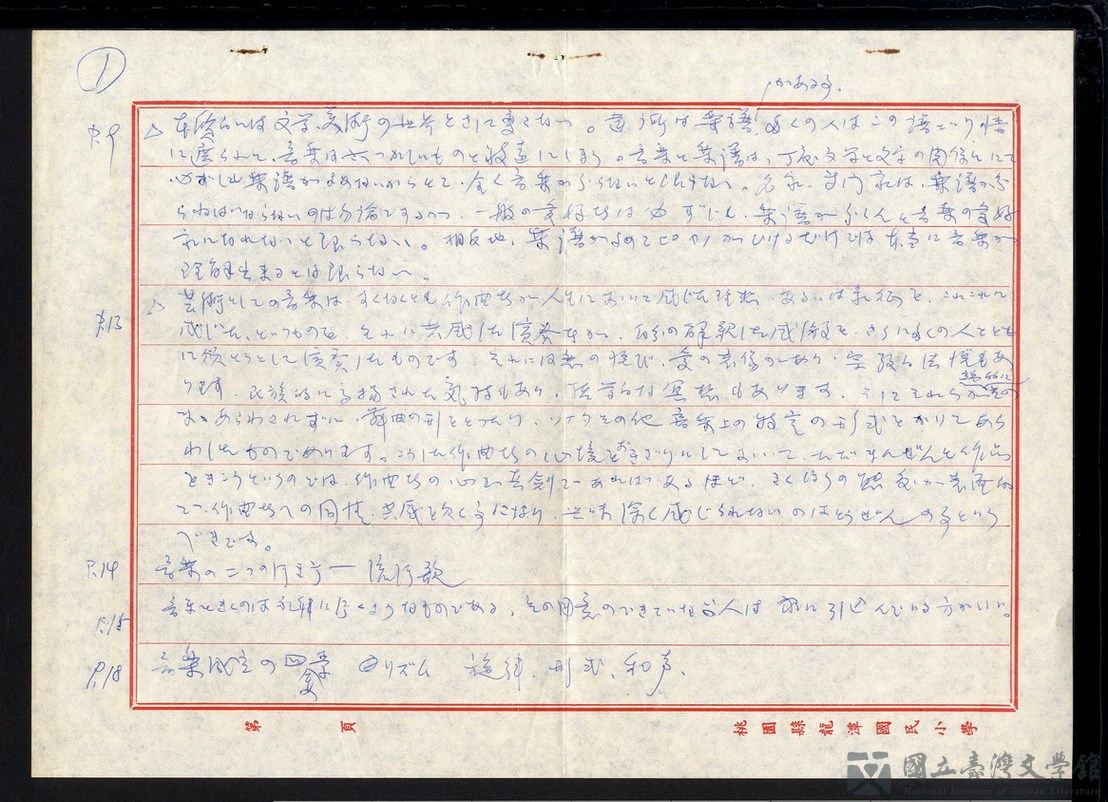 1
がある 多
P.9 △ 本質的には文学、美術の世界とさして変らない。違う所は楽譜 多くの人はこの譜という情
に遮られて、音楽はむづかしいものと敬遠にしまう。音楽と楽譜は、丁度文字と文学の関係にして
必ずしも楽譜がよめないからとて、全く音楽が分らないと限らない。名家、専門家は、楽譜が分
らねばならないのは勿論ですが、一般の愛好者は必ずしも、楽譜が分らんと音楽の愛好
家になれないと限らない。相反地、楽譜がよめてピアノがひけるだけでは本当に音楽が
理解出来るとは限らない。
P.13 △ 芸術としての音楽は、すくなくとも作曲者が人生において感じた理想、あるいは
感じた、というものを、それに共感した演奏者が、解釈した感激を、さらに多くの人とともに
に演奏したものです。それには恋の悦び、愛の哀傷があり、宗教的法悦もあ
ります。民族的に高揚された気持もあり、哲学的な冥想もあります。それらが
あらわされずに、舞曲の形をとったり、ソナタその他音楽上の特定の形式をかりてあら
わしたものであります。こうした作曲者の心境をおきざりにしておいて、ただまんぜんと作品
をきこうというのでは、作曲者の心が真剣であればあるほど、きくほうの態度が表面的
で、作曲者への同情、共感を欠く事になり、意味深く感じられないのはとうぜんの事という
べきです。
P.14 音楽の二つの行き方 — 流行歌
P.15 音楽をきくのは礼拝に行くようなものである。その用意のできていない人は家に引込んでいる方がいい。
P.18 音楽成立の四要 リズム 旋律、形式、和声.
第 頁
桃園縣龍潭國民小學
國立臺灣文學館
National Museum of Taiwan Literature